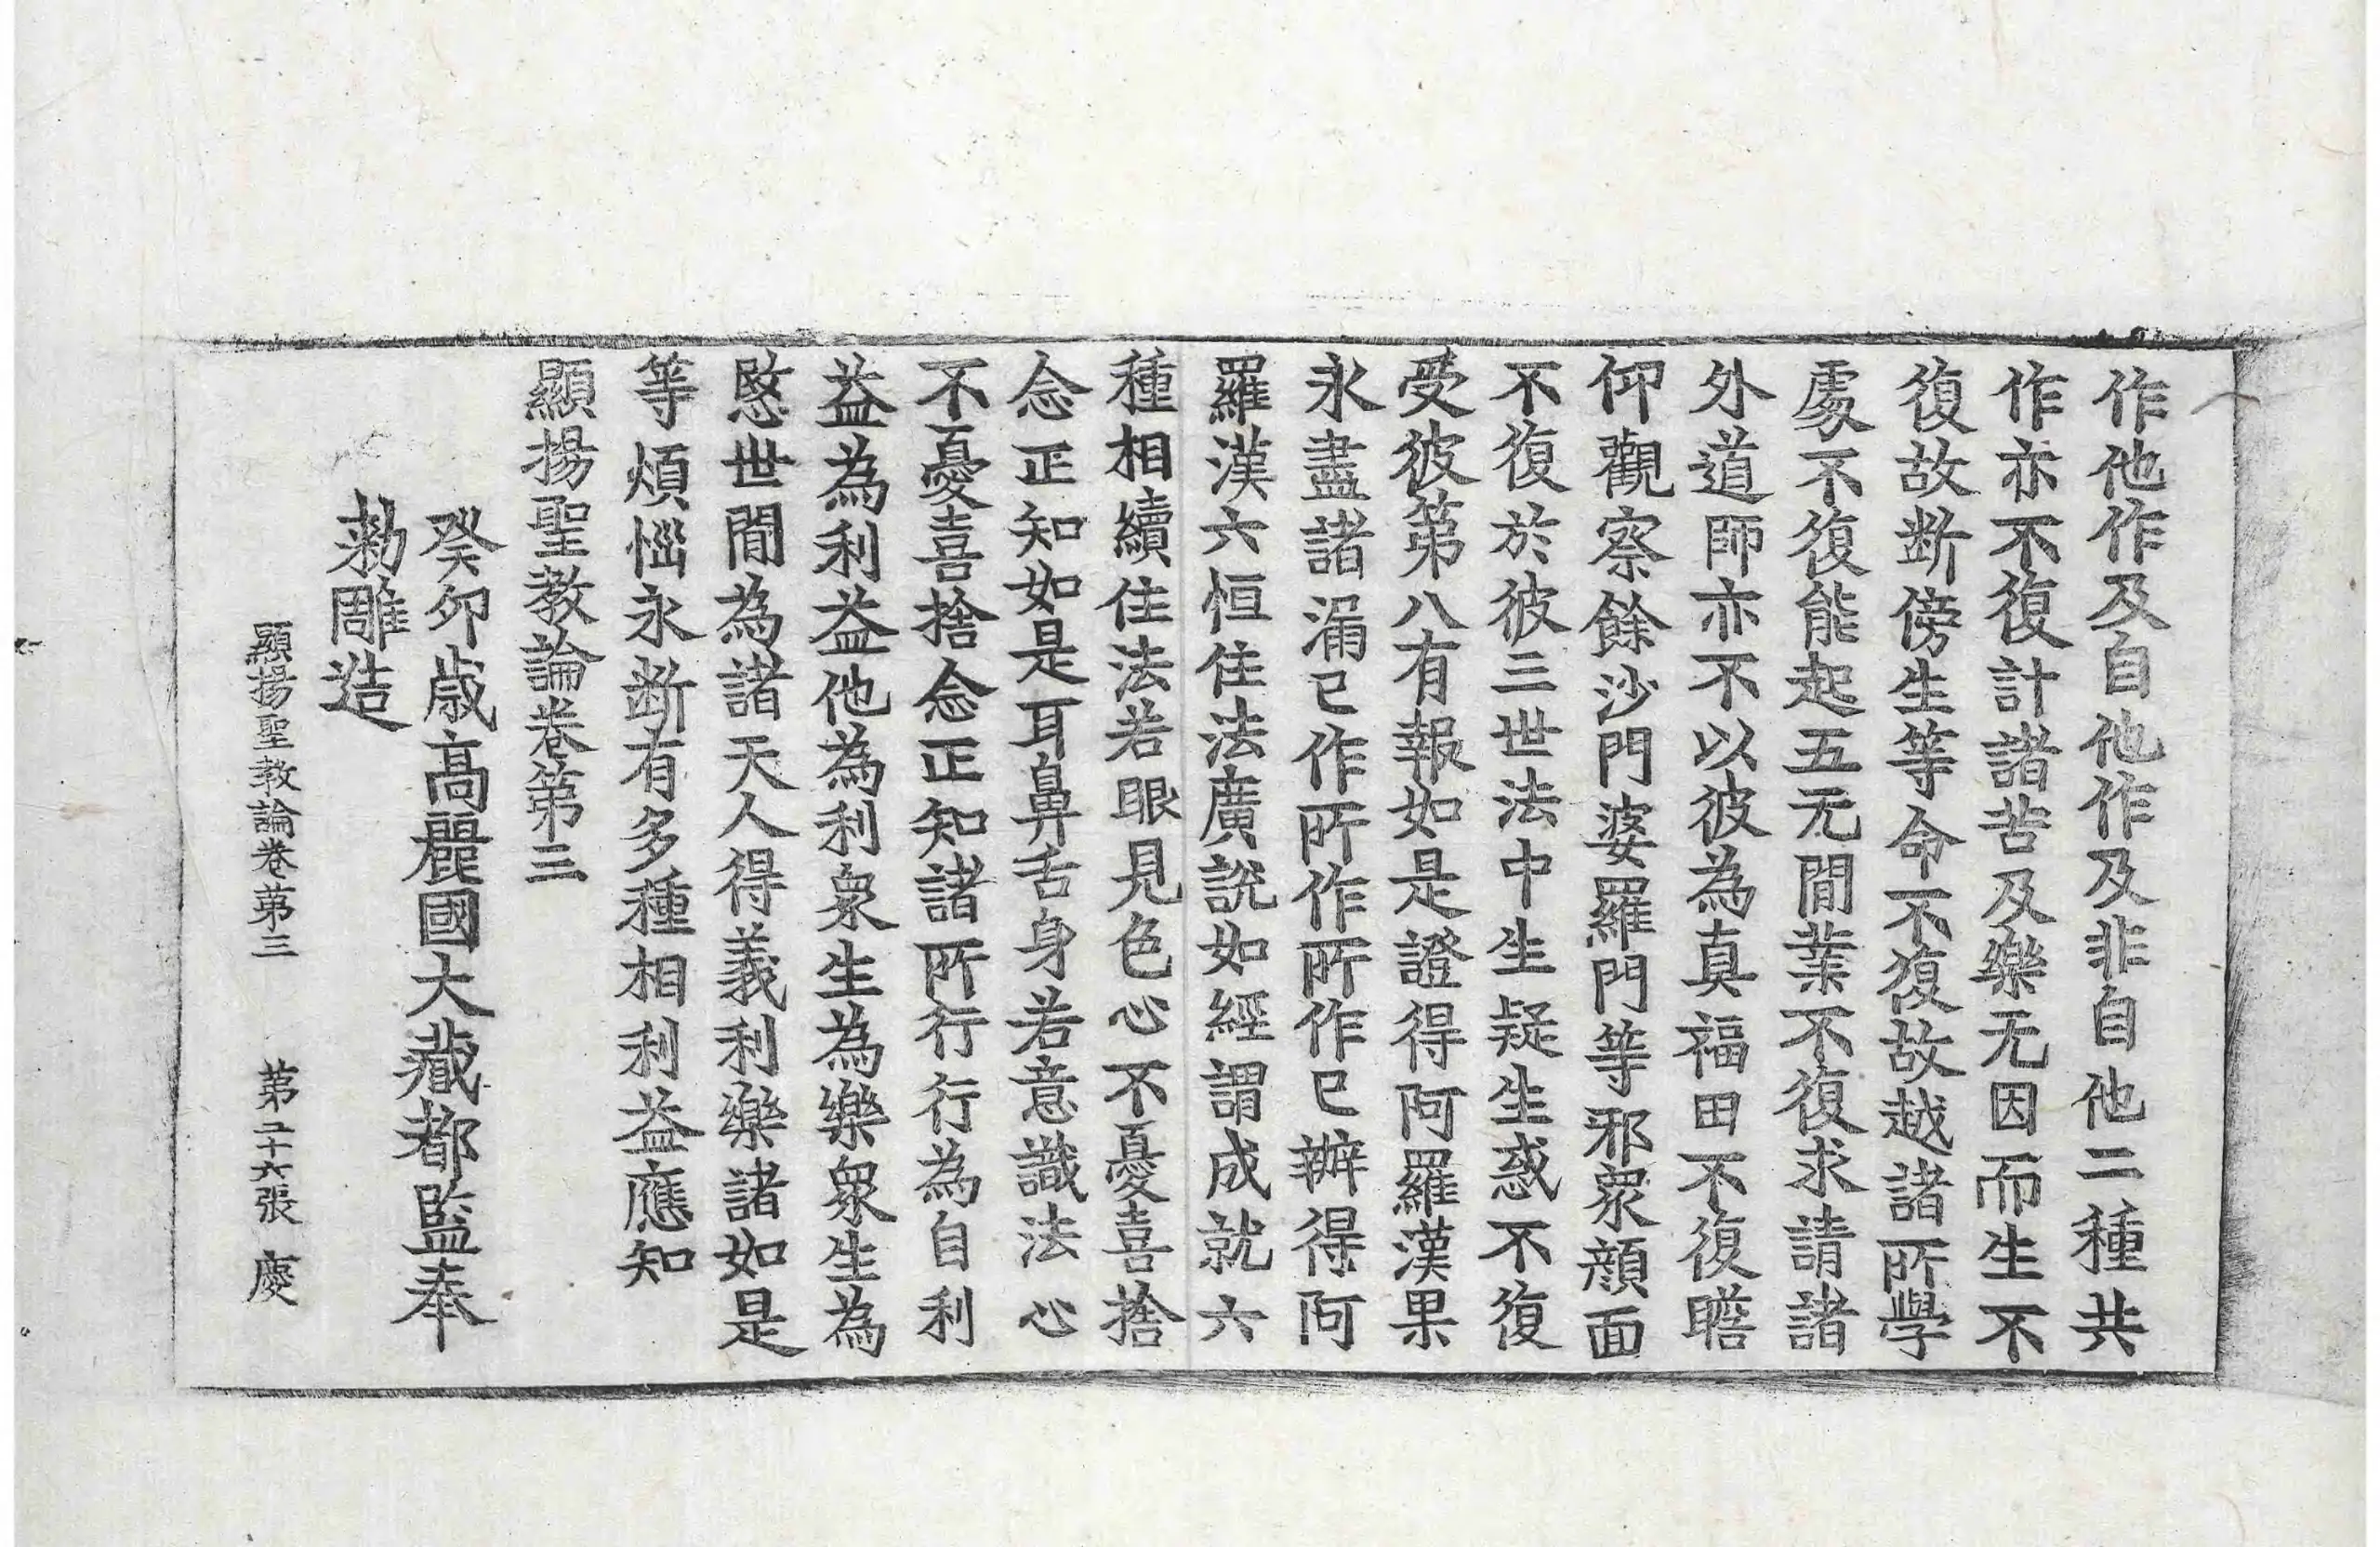 作他作及自他作及非自他二種共
作亦不復計諸苦及樂无因而生不
復故断傍生等命不復故越諸所學
處不復能起五无間業不復求請諸
外道師亦不以彼為真福田不復瞻
仰觀察餘沙門婆羅門等邪衆顔面
不復於彼三世法中生疑生惑不復
受彼第八有報如是證得阿羅漢果
永盡諸漏已作所作所作已辦得阿
羅漢六恒住法廣說如經謂成就六
種相續住法若眼見色心不憂喜捨
念正知如是耳鼻舌身若意識法心
不憂喜捨念正知諸所行行為自利
益為利益他為利衆生為樂衆生為
愍世間為諸天人得義利樂諸如是
等煩惱永断有多種相利益應知
顯揚聖教論卷第三
癸卯歳高麗國大藏都監奉
勅雕造
顯揚聖教論卷第三 第二十六張 慶